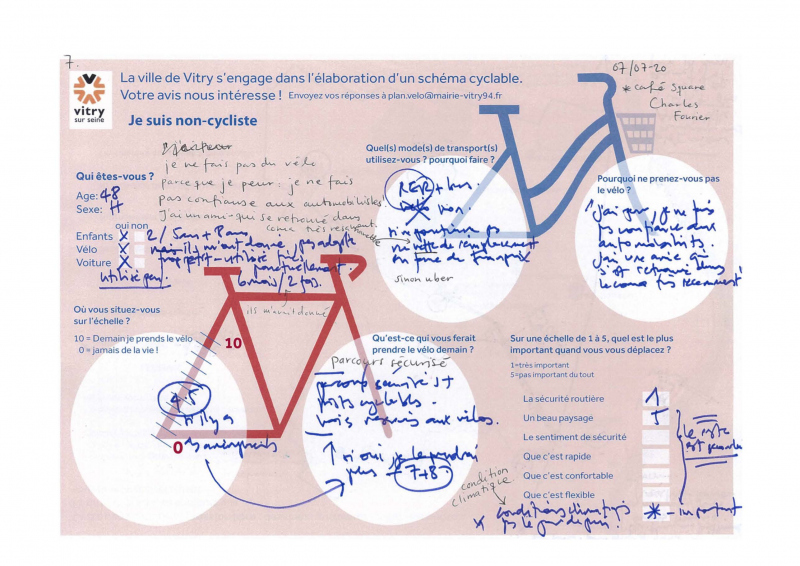 7.
07/07-20
* café Square
Charles
Fourier
vitry
sur seine
La ville de Vitry s'engage dans l'élaboration d'un schéma cyclable.
Votre avis nous intéresse ! Envoyez vos réponses à plan.velo@mairie-vitry94.fr
Je suis non-cycliste
je ne fais pas du vélo
parce que je peur : je ne fais
pas confianse aux automobilistes!
J'ai un ami qui se retrouvé dans
coma très rescement.
Qui êtes-vous ?
Age: 48
Sexe: H
oui non
Enfants X 2/ 5ans + 8ans
Vélo X mais ils m'ont donné, pas adapté
Voiture X trop petit - utilisé très
utilisé peu. ponctuellement
6 mois/2 fois.
ils m'avait donné
Quel(s) mode(s) de transport(s)
utilisez-vous ? pourquoi faire ?
RER + bus.
non.
navette
sinon uber
Pourquoi ne prenez-vous pas
le vélo ?
j'ai peur, je ne fais
pas confiance aux
automobilistes.
j'ai une amie qui
s'est retrouvé dans
le coma très récemment!
Où vous situez-vous
sur l'échelle ?
10 = Demain je prends le vélo
0 = jamais de la vie !
10
4.5
si il y a
des aménagements
0
Qu'est-ce qui vous ferait
prendre le vélo demain ?
parcours sécurisé
parcours sécurisés +
pistes cyclables.
voies réservés aux vélos.
si oui je le prendrai
plus 7+8?
Sur une échelle de 1 à 5, quel est le plus
important quand vous vous déplacez ?
1=très important
5=pas important du tout
La sécurité routière 1
Un beau paysage 5
Le sentiment de sécurité
Que c'est rapide
Que c'est confortable
Que c'est flexible
le reste
est
* - important
condition
climatique
* conditions climatiques